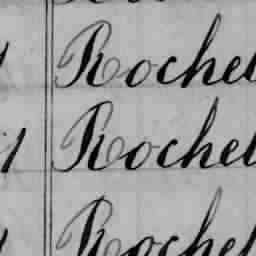 Rochel
Rochel
Rochel